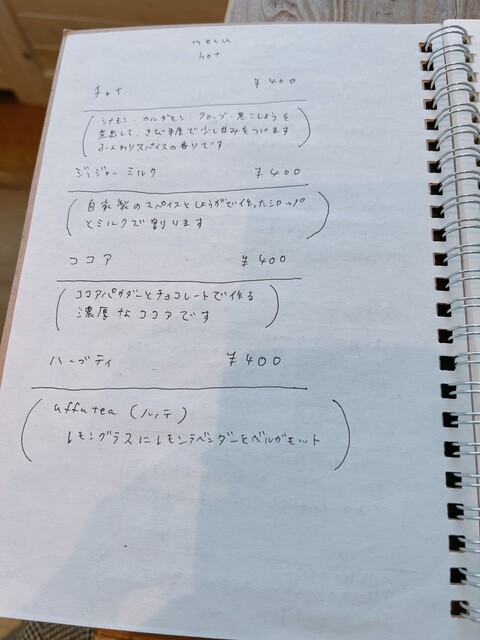 menu
hot
チャイ ¥400
(シナモン、カルダモン、クローブ、黒こしょうを
煮出して、きび砂糖で少し甘みをつけます
ふんわりスパイスの香りです)
ジンジャーミルク ¥400
(自家製のスパイスとしょうがで作ったシロップ
とミルクで割ります)
ココア ¥400
(ココアパウダーとチョコレートで作る
濃厚なココアです)
ハーブティ ¥400
(uffu tea
レモングラスにレモンラベンダーとベルガモット)